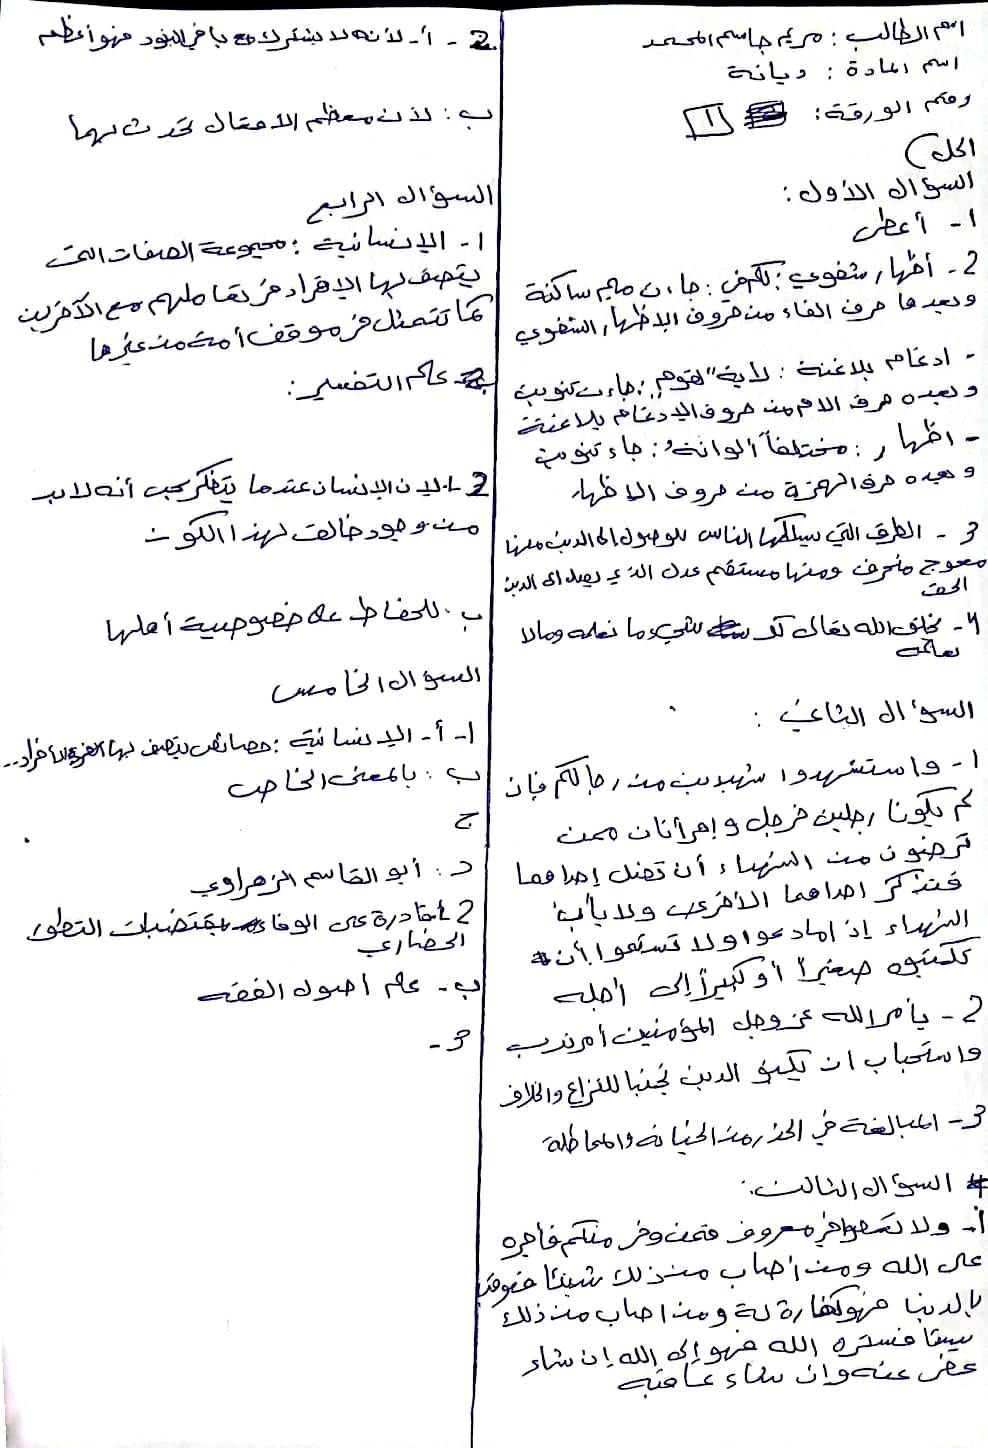 اسم الطالب : مريم جاسم المحمد
اسم المادة : ديانة
رقم الورقة : 1
الحل )
السؤال الأول :
1- أعطى
2- أظهار شفوي : لكم في : جاءت ميم ساكنة
وبعدها حرف الفاء من حروف الإظهار الشفوي
- ادغام بلاغنة : لآية لقوم : جاءت تنوين
وبعده حرف الام من حروف الإدغام بلاغنة
- اظهار : مختلفاً ألوانهُ : جاء تنوين
وبعده حرف الهمزة من حروف الاظهار
3 - الطرق التي يسلكها الناس للوصول الى الدين منها
معوج منحرف ومنها مستقيم عدل الذي يصل الى الدين
الحق
4- يخلق الله تعالى كل شيء ما نعلمه ومالا
نعلمه
السؤال الثاني :
1- واستشهدوا شهيدين من رجالكم فإن
لم يكونا رجلين فرجل وإمرأتان ممن
ترضون من الشهداء أن تضل إحداهما
فتذكر احداهما الأخرى ولا يأب
الشهداء إذا مادعوا ولا تسئموا أن
تكتبوه صغيراً أو كبيراً إلى أجله
2- يأمر الله عز وجل المؤمنين أمر ندب
واستحباب ان يكتبو الدين تجنبا للنزاع والخلاف
3- المبالغة في الحذر من الخيانه والمماطلة
السؤال الثالث :
أ- ولا تعصوا في معروف فمن وفى منكم فأجره
على الله ومن أصاب من ذلك شيئا فعوقب
بالدنيا فهو كفارة له ومن اصاب من ذلك
شيئا فستره الله فهو إلى الله إن شاء
عفى عنه وان شاء عاقبه
2- أ- لأنه لا يشترك مع باقي البنود فهو أعظم
ب : لأن معظم الأفعال تحدث بهما
السؤال الرابع
1- الإنسانية : مجموعة الصفات التي
يتصف بها الافراد في تعاملهم مع الآخرين
كما تتمثل في موقف أمة من غيرها
علم التفسير :
2 أ. لان الإنسان عندما يتفكر يجب أنه لابد
من وجود خالق لهذا الكون
ب . للحفاظ على خصوصية أهلها
السؤال الخامس
1- أ- الإنسانية : خصائص يتصف بها الأفراد..
ب : بالمعنى الخاص
ج
د : أبو القاسم الزهراوي
2 أ قادرة على الوفاء بمقتضيات التطور
الحضاري
ب- علم أصول الفقه
3-